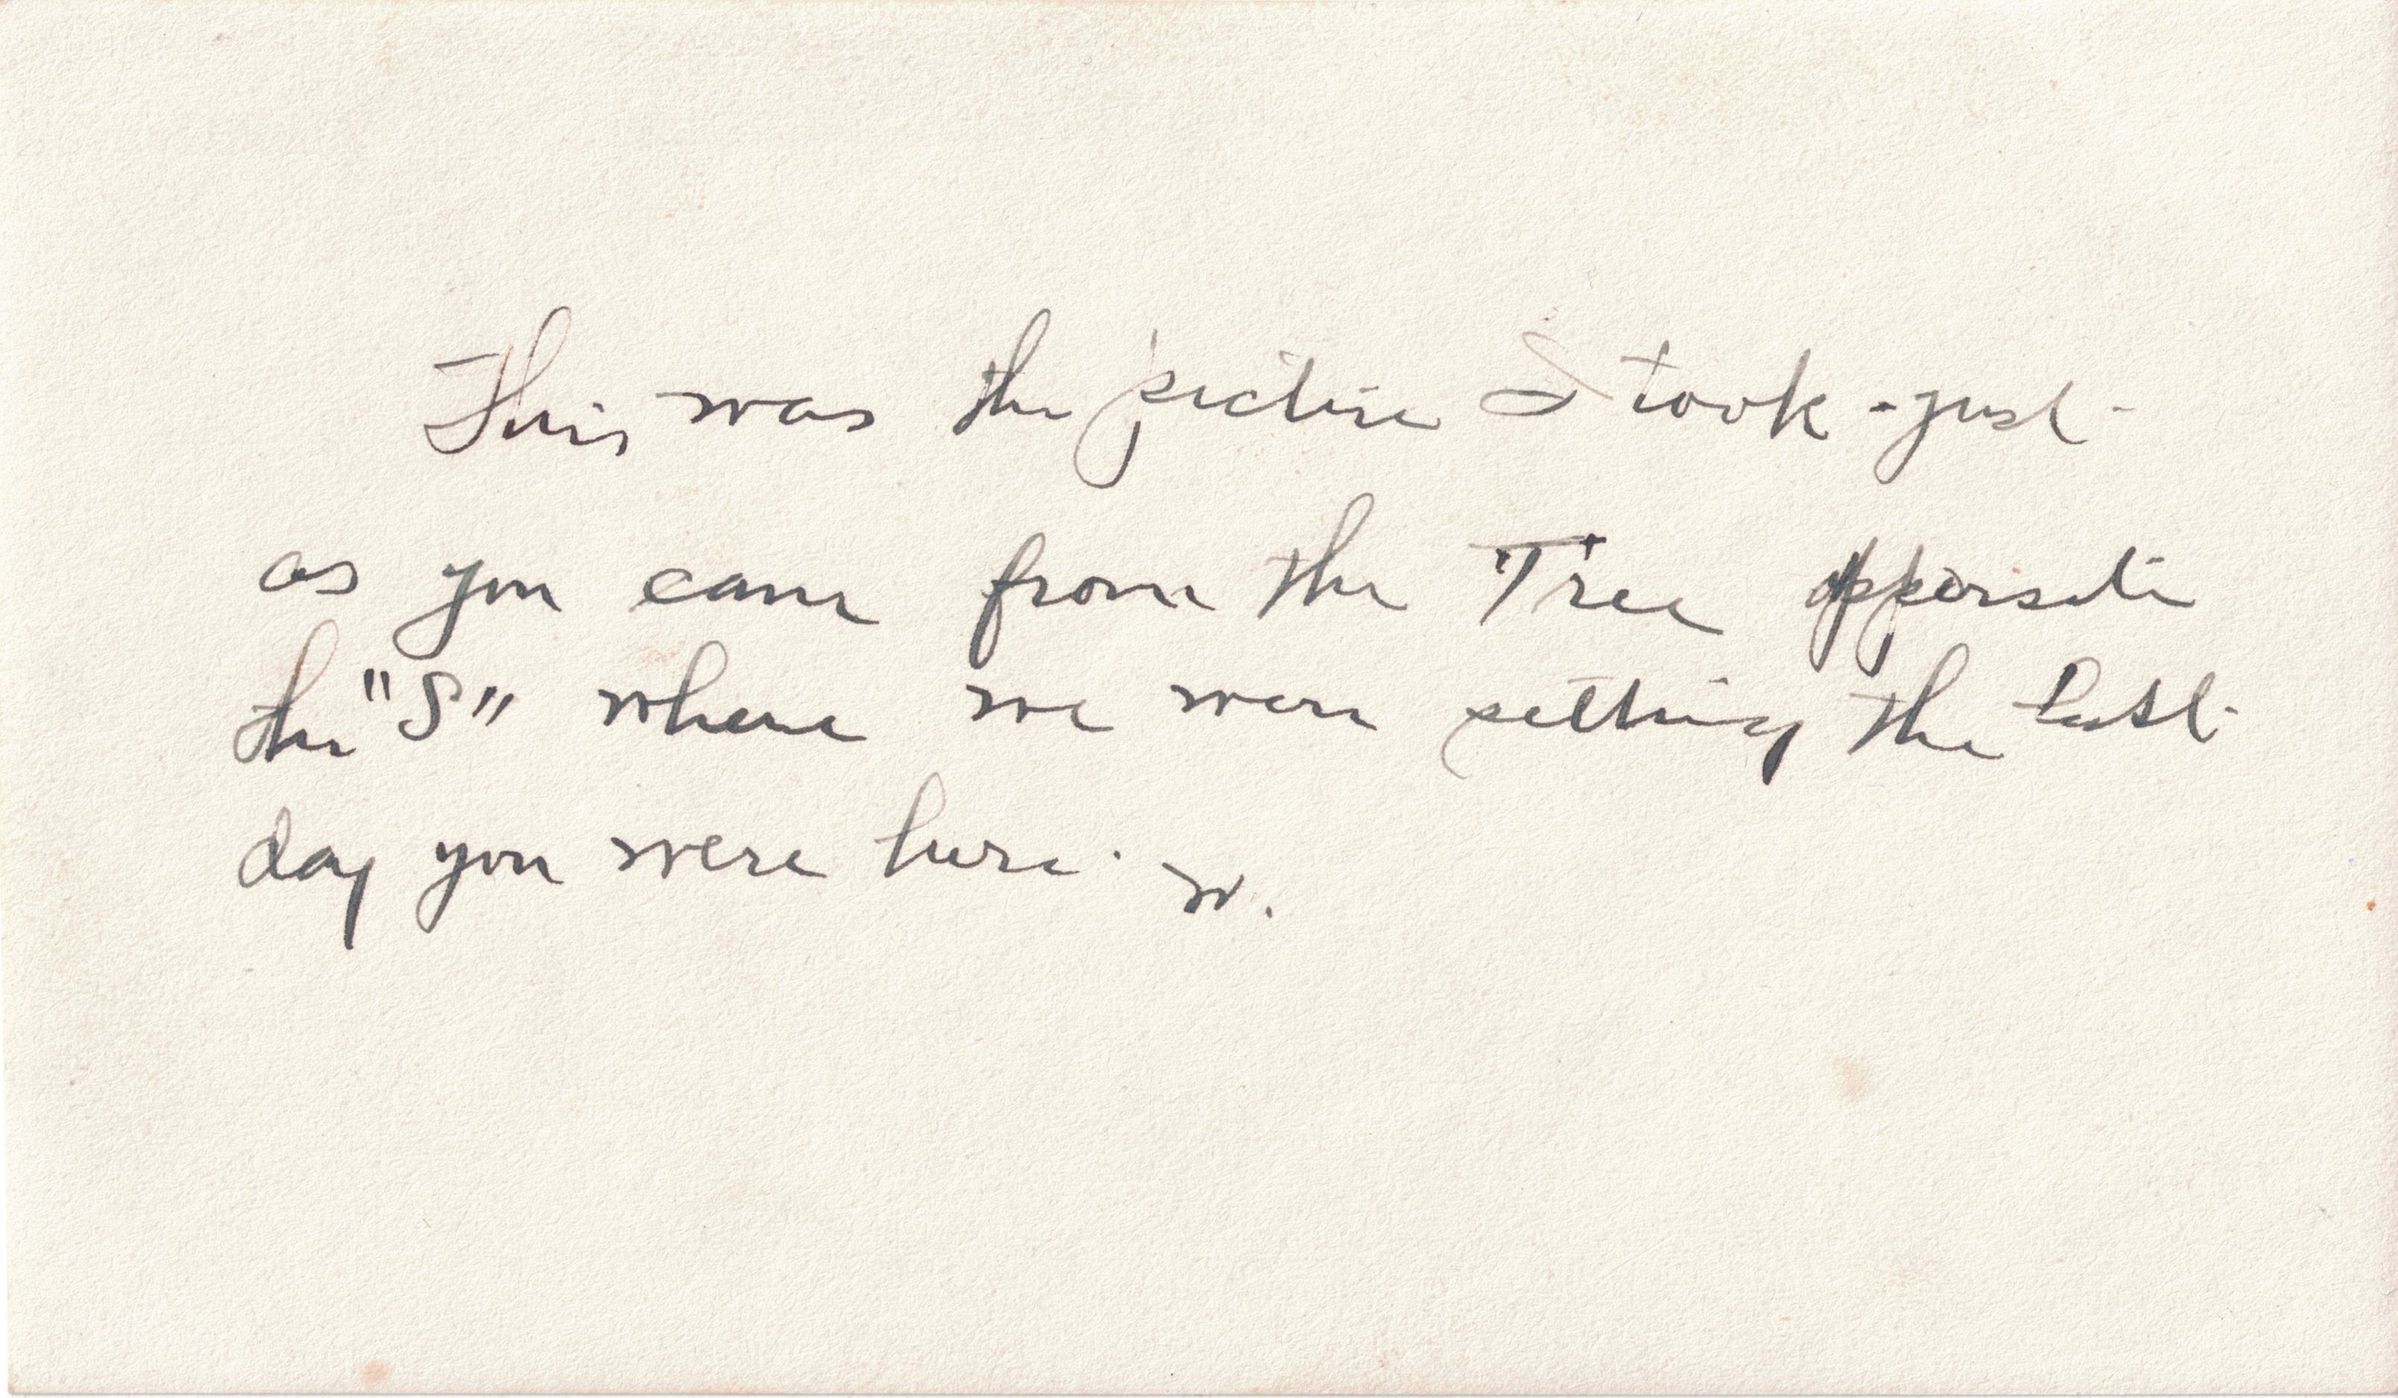 This was the picture I took - just -
as you came from the Tree opposite
the "S" where we were setting the last
day you were here. W.